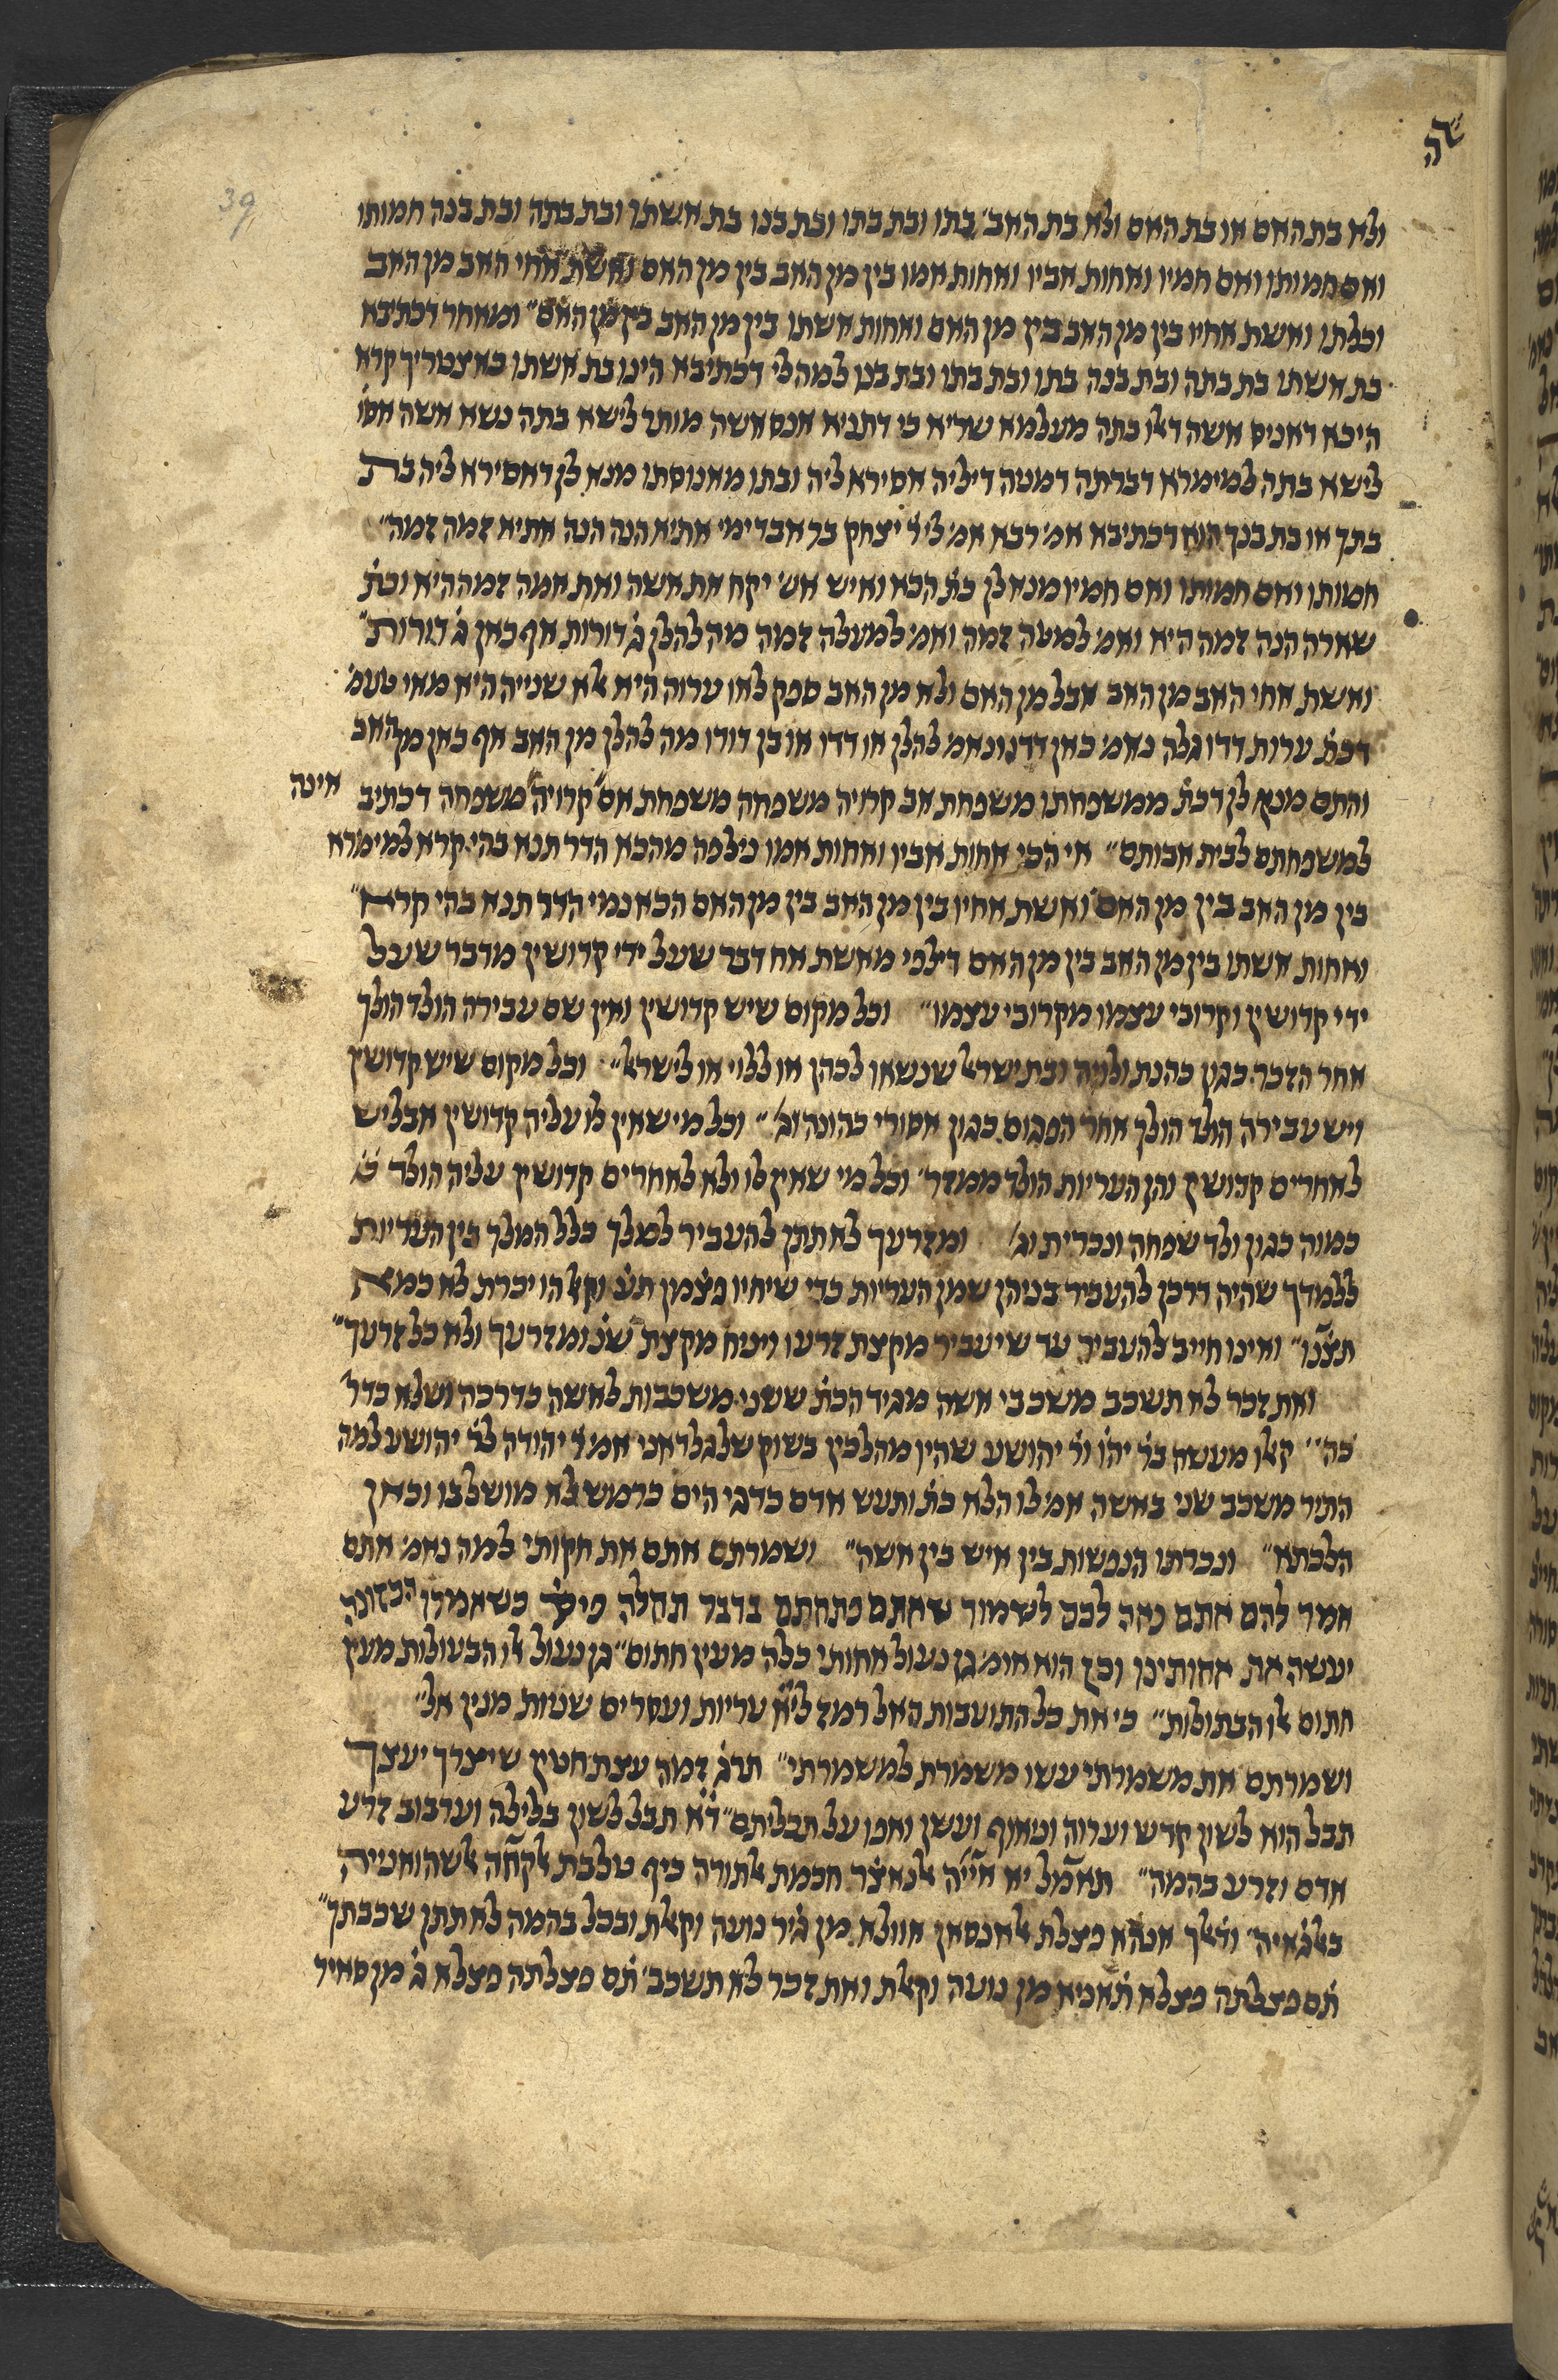 שה
39
ולא בת האם או בת האם ולא בת האב׳ בתו ובת בתו ובת בנו בת אשתו ובת בתה ובת בנה חמותו
ואם חמותו ואם חמיו ואחות אביו ואחות אמו בין מן האב בין מן האם ואשת אחי האב מן האב
וכלתו ואשת אחיו בין מן האב בין מן האם ואחות אשתו בין מן האב בין מן האם״ ומאחר דכתיבא
בת אשתו בת בתה ובת בנה בתו ובת בתו ובת בנו למה לי דכתיבא הינו בת אשתו באצטריך קרא
היכא דאניס אשה דאלו בתה מעלמא שריא כי דתניא אנס אשה מותר לישא בתה נשא אשה אסו׳
לישא בתה למימרא דברתה דמטה דיליה אסירא ליה ובתו מאנוסתו מנא לן דאסירא ליה בת
בתך או בת בנך הוא דכתיבא אמ׳ רבא אמ׳ לי ר׳ יצחק בר אבדימי אתיא הנה הנה אתיא זמה זמה״
חמותו ואם חמותו ואם חמיו מנא לן כת׳ הכא ואיש אש׳ יקח את אשה ואת אמה זמה היא וכת׳
שארה הנה זמה היא ואמ׳ למטה זמה ואמ׳ למעלה זמה מה להלן ג׳ דורות אף כאן ג׳ דורות״
ואשת אחי האב מן האב אבל מן האם ולא מן האב ספק לאו ערוה היא אלא שנייה היא מאי טעמ׳
דכת׳ ערות דדו גלה נאמ׳ כאן דדו ונאמ׳ להלן או דדו או בן דודו מה להלן מן האב אף כאן מן האב
והתם מנא לן דכת׳ ממשפחתו משפחת אב קרויה משפחה משפחת אם קרויה משפחה דכתיב
אינה
למשפחתם לבית אבותם״ אי הכי אחות אביו ואחות אמו נילפה מהכא הדר תנא בהי קרא למימרא
בין מן האב בין מן האם ואשת אחיו בין מן האב בין מן האם הכא נמי הדר תנא בהי קרא״
ואחות אשתו בין מן האב בין מן האם דילפי מאשת אח דבר שעל ידי קדושין מדבר שעל
ידי קדושין וקרובי עצמו מקרובי עצמו״ וכל מקום שיש קדושין ואין שם עבירה הולד הולך
אחר הזכר כגון כהנת ולויה ובת ישראל שנשאו לכהן או ללוי או לישראל״ וכל מקום שיש קדושין
ויש עבירה הולד הולך אחר הפגום כגון אסורי כהונה וג׳״ וכל מי שאין לו עליה קדושין אבל יש
לאחרים קדושין והן העריות הולד ממזר׳ וכל מי שאין לו ולא לאחרים קדושין עליה הולד
כמוה כגון ולד שפחה ונכרית וג׳ ומזרעך לא תתן להעביר למלך כלל המלך בין העריות
ללמדך שהיה דרכן להעביר בניהן שמן העריות כדי שיחיו
תצ̇נו״ ואינו חייב להעביר עד שיעביר מקצת זרעו ויניח מקצת שנ׳ ומזרעך ולא כל זרעך״
ואת זכר לא תשכב משכבי אשה מגיד הכת׳ ששני משכבות לאשה כדרכה ושלא כדר׳
כה׳׳ קאלו מעשה בר׳ יהו׳ ור׳ יהושע שהיו מהלכין בשוק אמ׳ ר׳ יהודה לר׳ יהושע למה
התיר משכב שני באשה אמ׳ לו הלא כת׳ ותעש אדם כדגי הים כרמש לא מושל בו וכאן
הלכתא״ ונכרתו הנפשות בין איש בין אשה״ ושמרתם אתם את חקותי למה נאמ׳ אתם
אמר להם אתם נאה לכם לשמור שאתם פתחתם בדבר תחלה כשאמרו הכזונה
יעשה את אחותינו וכן הוא אומ׳ גן נעול אחותי כלה מעין חתום״ גן נעול אלו הבעולות מעין
חתום אלו הבתולות״ כי את כל התועבות האל רמז עריות ועסרים שניות מנין אל״
ושמרתם את משמרתי עשו משמרת למשמרתי״ תרג׳ זמה עצת חטין שיצרך יעצך
תבל הוא לשון קדש וערוה וטאוף ועשן ואפו על תבליתם״ ד׳א תבל לשון בלילה וערבוב זרע
אדם וזרע בהמה״ תאמל יא אייה אלנאצ̇ר חכמת אלתורה כיף טלבת
ואלך אנהא פצלת אלאנסאן אוולא מן גיר נועה וקאלת ובכל בהמה לא תתן שכבתך״
תם פצלתה פצלא ת̇אניא מן נועה וקאלת ואת זכר לא תשכב׳ ת̇ם פצלתה פצלא ג̇ מן סאיר